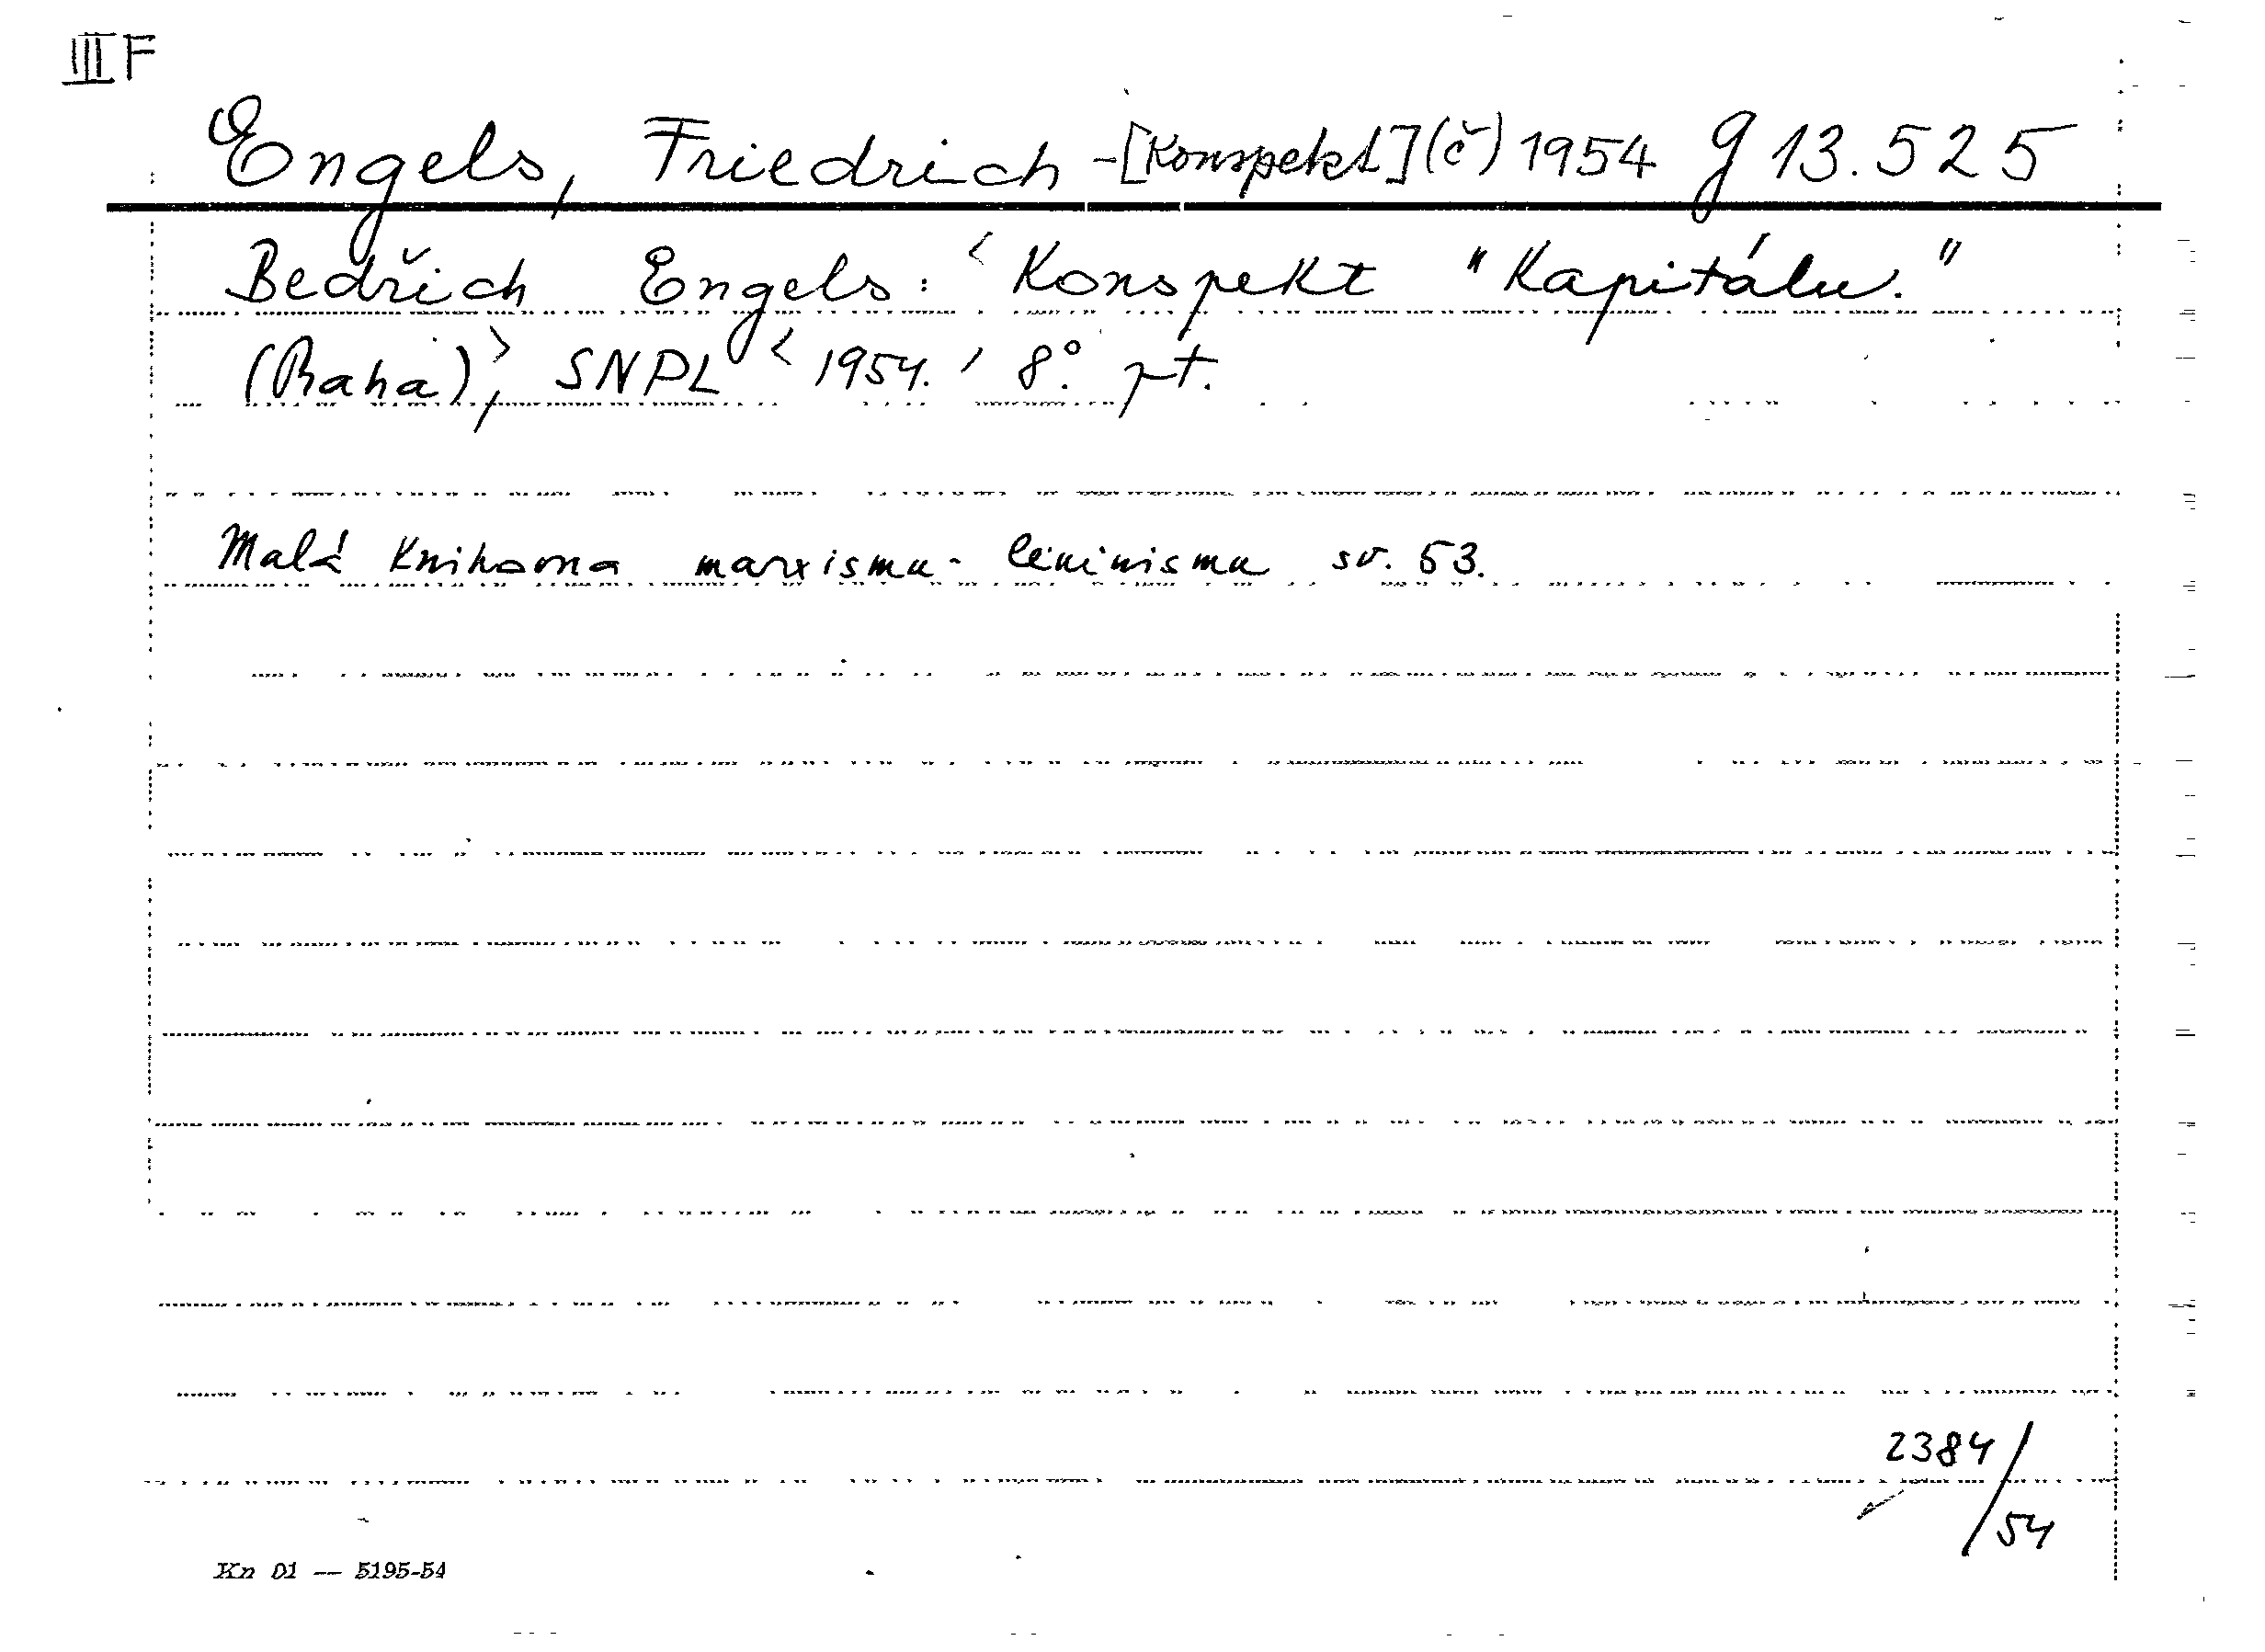 III F
Engels, Friedrich -[Konspekt](č) 1954 g 13.525
Bedřich Engels: <Konspekt "Kapitálu."
(Praha)>, SNPL < 1954. / 8°. pt.
Malá Knihovna marxismu-leninismu sv. 53.
2384/
54
Kn 01 — 5195-54